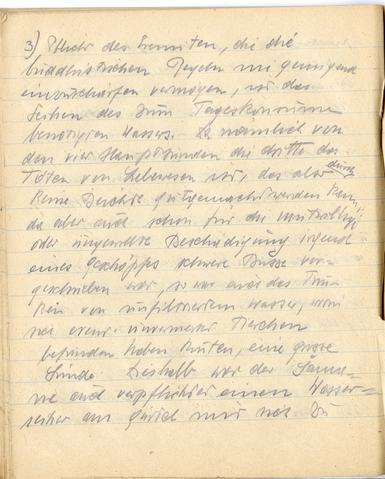 3) Pflicht des Eremiten, die die
buddhistischen Regeln nie genügend
einzuschärfen vermögen, war das
Seihen des zum Tageskonsum
benötigten Wassers. Da nämlich von
den vier Hauptsünden die dritte das
Töten von Lebewesen war, das aber durch
keine Beichte gutgemacht werden kann,
da aber auch schon für die
oder ungewollte Beschädigung irgend
eines Geschöpfes schwere Busse vor-
geschrieben war, so war auch das Trin-
ken von unfiltriertem Wasser, worin
sich event. Tierchen
befunden haben könnten, eine grosse
Sünde. Deshalb war der Sama-
ne auch verpflichtet einen Wasser-
seiher am mit